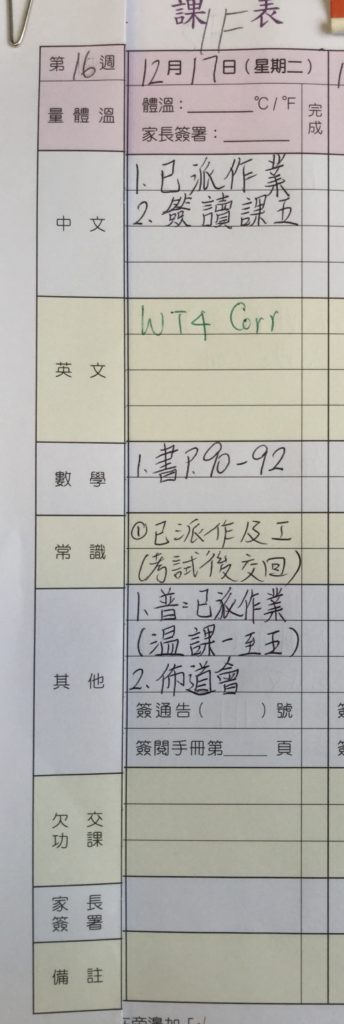 課表
1F
第16週
12月17日(星期二)
量體溫
體溫：______℃/℉
家長簽署：______
完成
中文
1. 已派作業
2. 簽讀課五
英文
WT4 Corr
數學
1. 書P.90-92
常識
①已派作及工
(考試後交回)
其他
1. 普：已派作業
(温課一至五)
2. 佈道會
簽通告( )號
簽閱手冊第____頁
欠交功課
家長簽署
備註